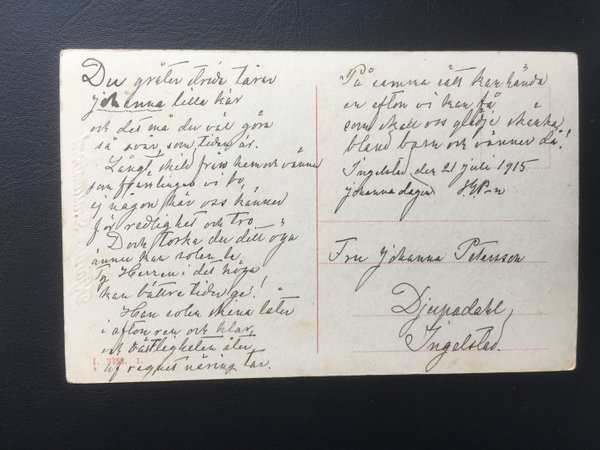 Du gråter strida tårar
johanna lilla här
och det må du väl göra
så svår, som tiden är.
Långt skild från hem och vänner
som främlingar vi bo,
ej någon här oss känner
för redlighet och tro.
Dock torka du ditt öga
ännu kan solen le,
Ty Herren i det höga,
kan bättre tider ge!
Han solen skina låter
i afton ren och klar,
och växtligheten åter
af regnet näring tar.
På samma sätt kan hända
en afton vi kan få
som skall oss glädje skänka,
bland barn och vänner då!
Ingelstad den 21 juli 1915
johannadagen
Fru Johanna Petersson
Djupadahl
Ingelstad.
I. 3353. 1.